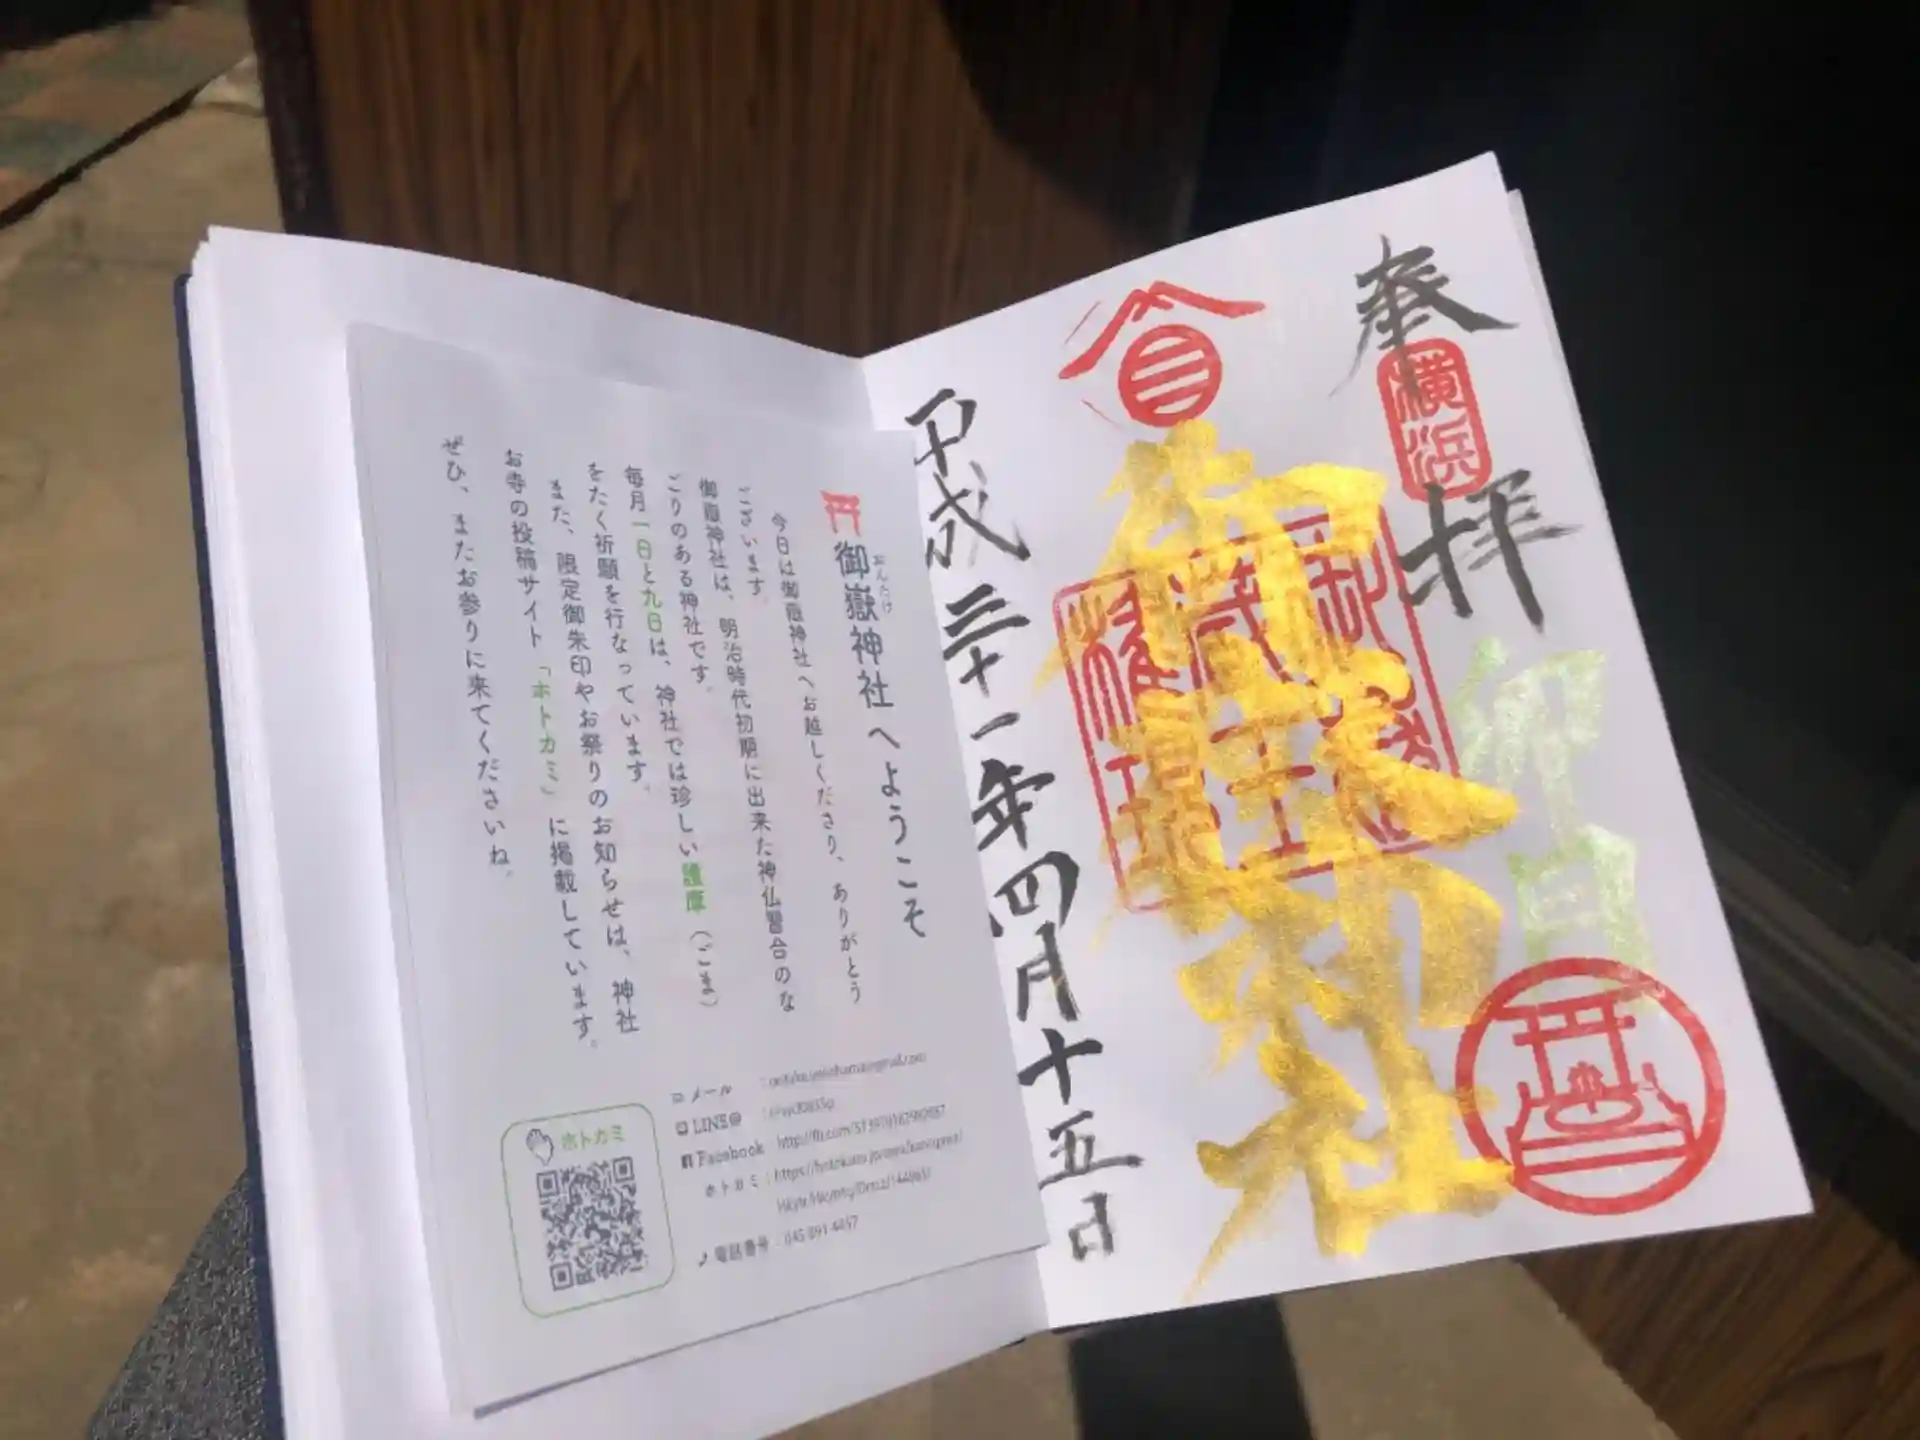 奉拝
横浜
卯月
御嶽神社
平成三十一年四月十五日
御嶽神社へようこそ
おんたけ
今日は御嶽神社へお越しくださり、ありがとう
ございます。
御嶽神社は、明治時代初期に出来た神仏習合のな
ごりのある神社です。
毎月一日と九日は、神社では珍しい護摩（ごま）
をたく祈願を行なっています。
また、限定御朱印やお祭りのお知らせは、神社
お寺の投稿サイト「ホトカミ」に掲載しています。
ぜひ、またお参りに来てくださいね。
メール：
LINE@：
Facebook
ホトカミ：
電話番号：
ホトカミ